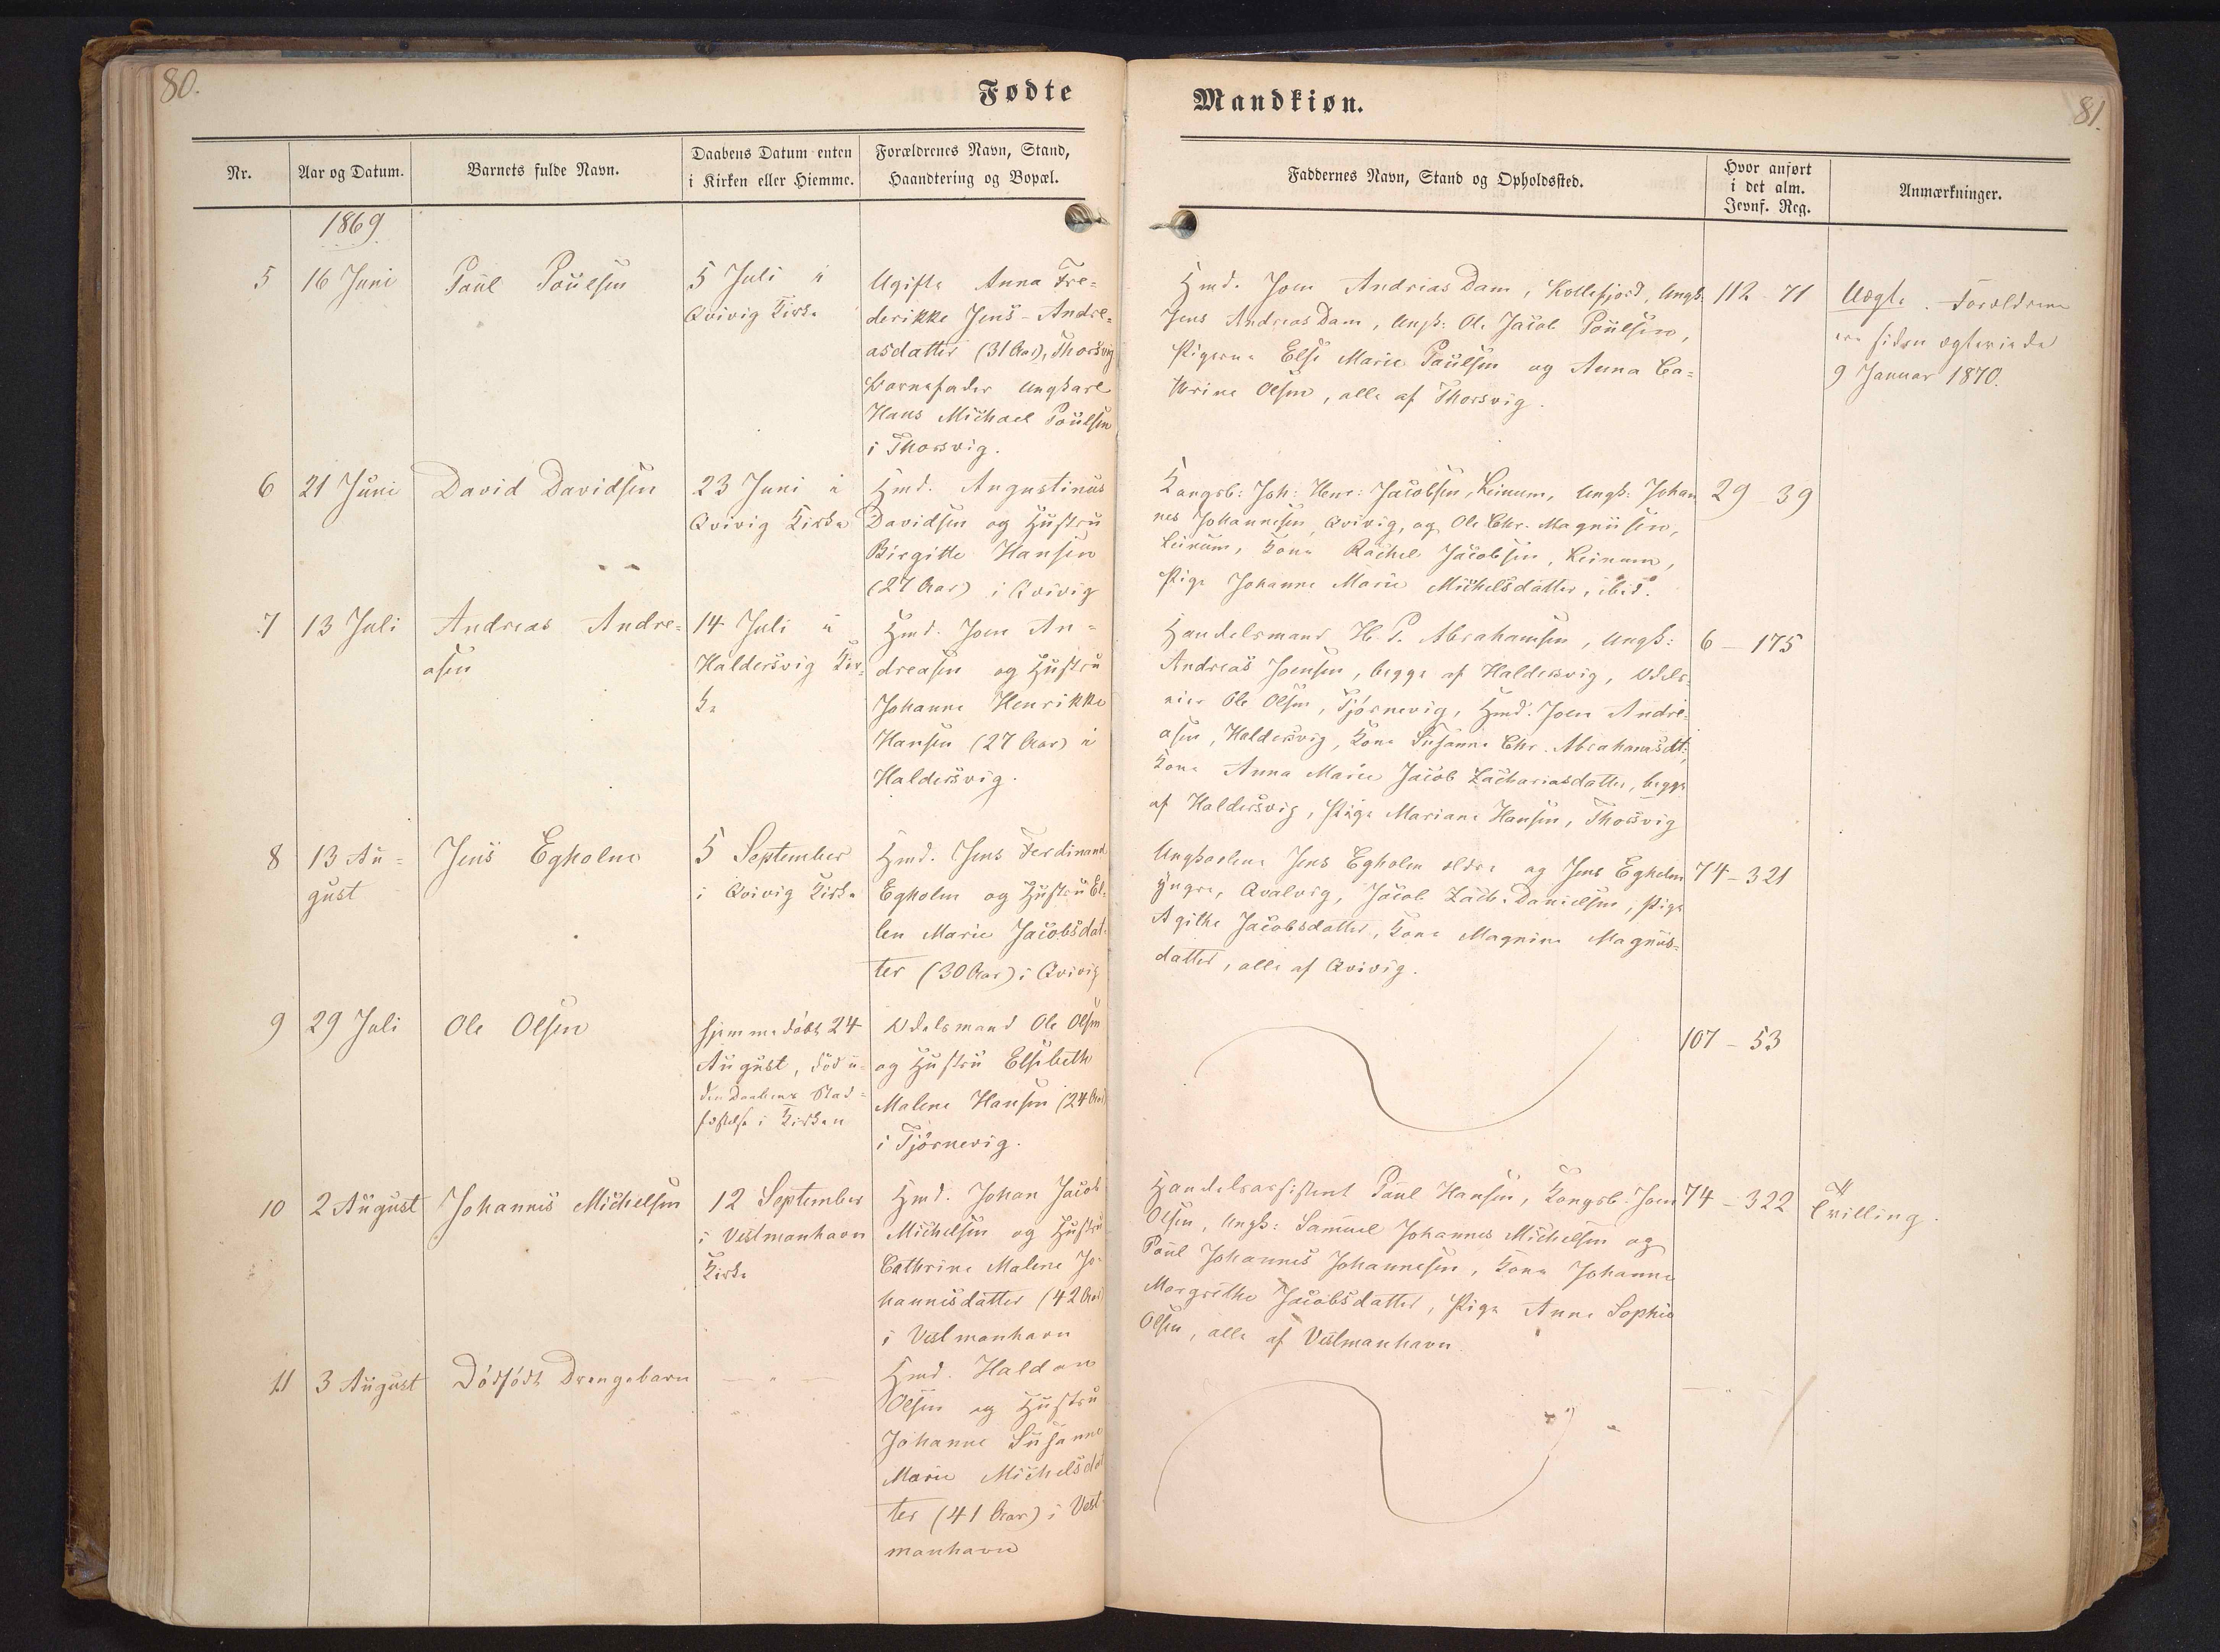 80.
Fødte
Nr.
Aar og Datum.
Barnets fulde Navn.
Daabens Datum enten
i Kirken eller Hiemme.
Forældrenes Navn, Stand,
Haandtering og Bopæl.
1869
5
16 Juni
Poul Poulsen
5 Juli i
Qvivig Kirke
Ugifte Anna Fre=
derikke Jens-Andre=
asdatter (31 Aar), Thorsvig
Barnefader Ungkarl
Hans Michael Poulsen
i Thorsvig.
6
21 Juni
David Davidsen
23 Juni i
Qvivig Kirke
Hmd. Augustinus
Davidsen og Hustru
Birgitte Hansen
(27 Aar) i Qvivig
7
13 Juli
Andreas Andre=
asen
14 Juli i
Haldersvig Kir=
ke
Hmd. Joen An=
dreasen og Hustru
Johanne Henrikke
Hansen (27 Aar) i
Haldersvig.
8
13 Au=
gust
Jens Egholm
5 September
i Qvivig Kirke
Hmd. Jens Ferdinand
Egholm og Hustru El=
len Marie Jacobsdat=
ter (30 Aar) i Qvivig
9
29 Juli
Ole Olsen
hjemmedøbt 24
August, død u=
den Daabens Stad=
fæstelse i Kirken
Odelsmand Ole Olsen
og Hustru Elsebeth
Malene Hansen (24 Aar)
i Tjørnevig.
10
2 August
Johannes Michelsen
12 September
i Vestmanhavn
Kirke
Hmd. Johan Jacob
Michelsen og Hustru
Cathrine Malene Jo=
hannesdatter (42 Aar)
i Vestmanhavn
11
3 August
Dødfødt Drengebarn
— " —
Hmd. Haldan
Olsen og Hustru
Johanne Susanne
Marie Michelsdat
ter (41 Aar) i Vest=
manhavn
Mandkiøn.
81.
Faddernes Navn, Stand og Opholdssted.
Hvor anført
i det alm.
Jevnf. Reg.
Anmærkninger.
Hmd. Joen Andreas Dam, Kollefjord, Ungk.
Jens Andreas Dam, Ungk: Ole Jacob Poulsen,
Pigerne Else Marie Poulsen og Anna Ca=
thrine Olsen, alle af Thorsvig.
112 – 71
Uægte. Forældrene
ere siden ægteviede
9 Januar 1870.
Kongsb: Joh: Henr: Jacobsen, Leinum, Ungk: Johan
nes Johannesen, Qvivig, og Ole Chr. Magnussen,
Leinum, Kone Rachel Jacobsen, Leinum,
Pige Johanne Marie Michelsdatter, ibid.
29 – 39
Handelsmand H. P. Abrahamsen, Ungk:
Andreas Joensen, begge af Haldersvig, Odels=
eier Ole Olsen, Tjørnevig, Hmd. Joen Andre=
asen, Haldersvig, Kone Susanne Chr. Abrahamsdt.,
Kone Anna Marie Jacob Zachariasdatter, begge
af Haldersvig, Pige Mariane Hansen, Thorsvig
6 – 175
Ungkarlene Jens Egholm ældre og Jens Egholm
yngre, Qvalvig, Jacob Zach. Danielsen, Pige
Agithe Jacobsdatter, Kone Magnine Magnus=
datter, alle af Qvivig.
74 – 321
107 – 53
Handelsassistent Poul Hansen, Kongsb. Joen
Olsen, Ungk: Samuel Johannes Michelsen og
Poul Johannes Johannesen, Kone Johanne
Margrethe Jacobsdatter, Pige Anne Sophie
Olsen, alle af Vestmanhavn.
74 – 322
Tvilling.
— " —